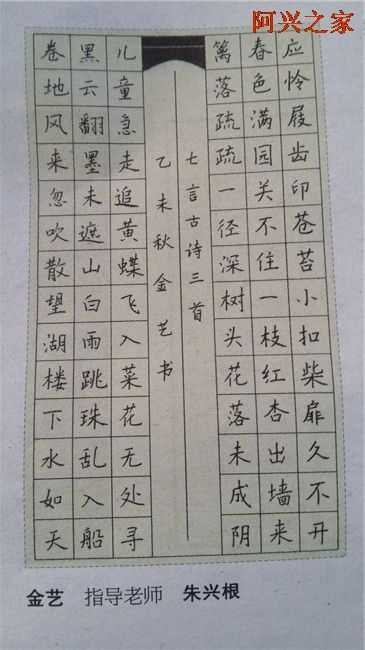 阿兴之家
应怜屐齿印苍苔小扣柴扉久不开
春色满园关不住一枝红杏出墙来
篱落疏疏一径深树头花落未成阴
七言古诗三首
乙未秋金艺书
儿童急走追黄蝶飞入菜花无处寻
黑云翻墨未遮山白雨跳珠乱入船
卷地风来忽吹散望湖楼下水如天
金艺 指导老师 朱兴根